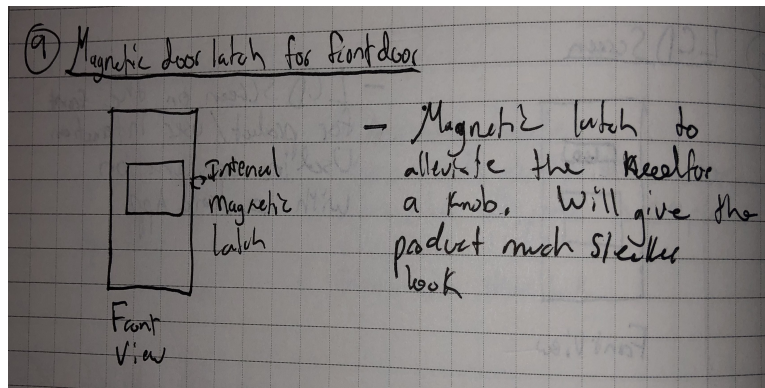 9 Magnetic door latch for front door
Internal
magnetic
latch
Front
View
- Magnetic latch to
alleviate the need for
a knob. Will give the
product much sleeker
look